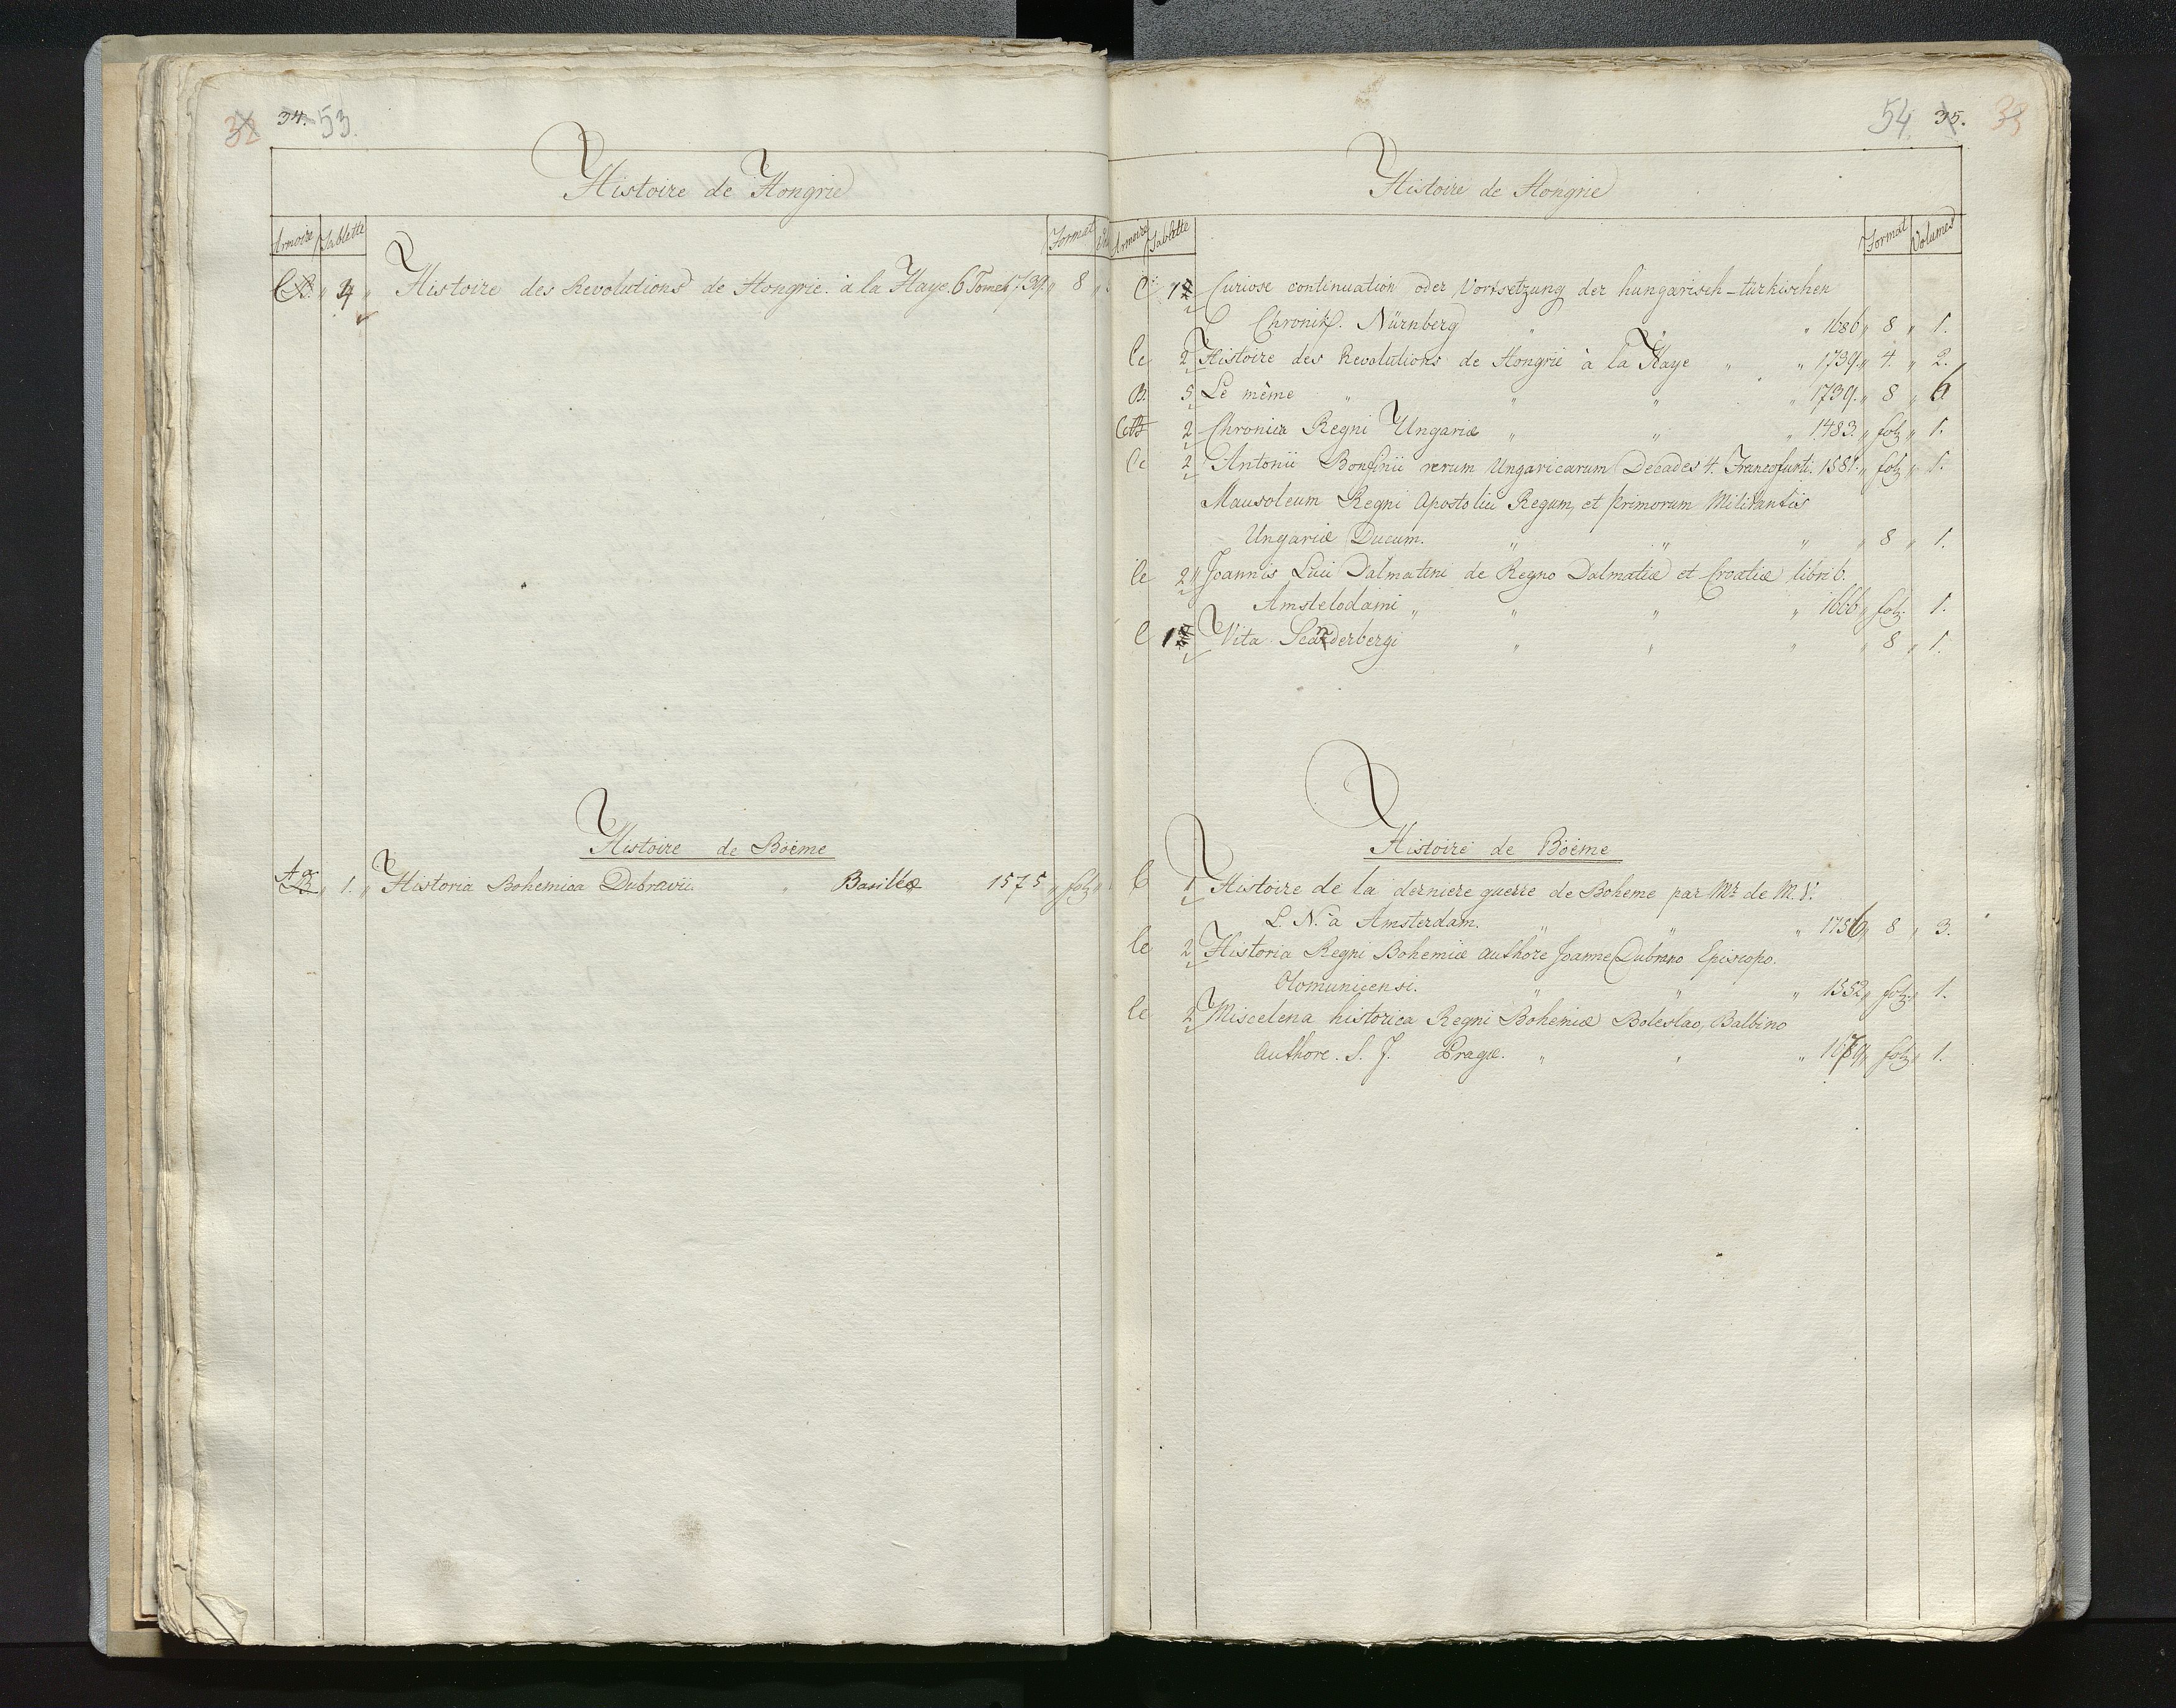 32 34. 53.
Histoire de Hongrie
Armoire Tablette Format
C B. " 4 " Histoire des Revolutions de Hongrie. à la Haye. 6 Tomes 1739. " 8 "
Histoire de Böeme
A B " 1. " Historia Bohemica Dubravii. " Basileæ 1575 " fol "
54 35. 33
Histoire de Hongrie
Armoire Tablette Format Volumes
C 1 Curiose continuation oder Vortsetzung der hungarisch-türkischen
Chronik. Nürnberg " " " 1686 " 8 " 1.
Cc 2 Histoire des Revolutions de Hongrie à la Haye " " 1739. " 4. " 2.
B. 5 Le même " " " " 1739. " 8 " 6
2 Chronica Regni Ungariæ " " " 1483. " fol " 1.
Cc 2 Antonii Bonfinii rerum Ungaricarum Decades 4. Francofurti. 1581. " fol " 1.
Mausoleum Regni Apostolici Regum, et primorum Militantis
Ungariæ Ducum. " " " " 8 " 1.
Cc 2 " Joannis Lucii Dalmatini de Regno Dalmatiæ et Croatiæ libri 6.
Amstelodami " " " " 1666 " fol. 1.
C 1 Vita Scanderbergi " " " " 8 " 1.
Histoire de Böeme
C 1 Histoire de la derniere guerre de Boheme par Mr. de M. V.
L. N. à Amsterdam. " " " 1756 " 8 " 3.
Cc 2 Historia Regni Bohemiæ authore Joanne Dubravo Episcopo.
Olomunicensi. " " " 1552 " fol. " 1.
Cc 2 Miscelena historica Regni Bohemiæ Boleslao, Balbino
Authore. S. J. Pragæ. " " " 1679 " fol " 1.